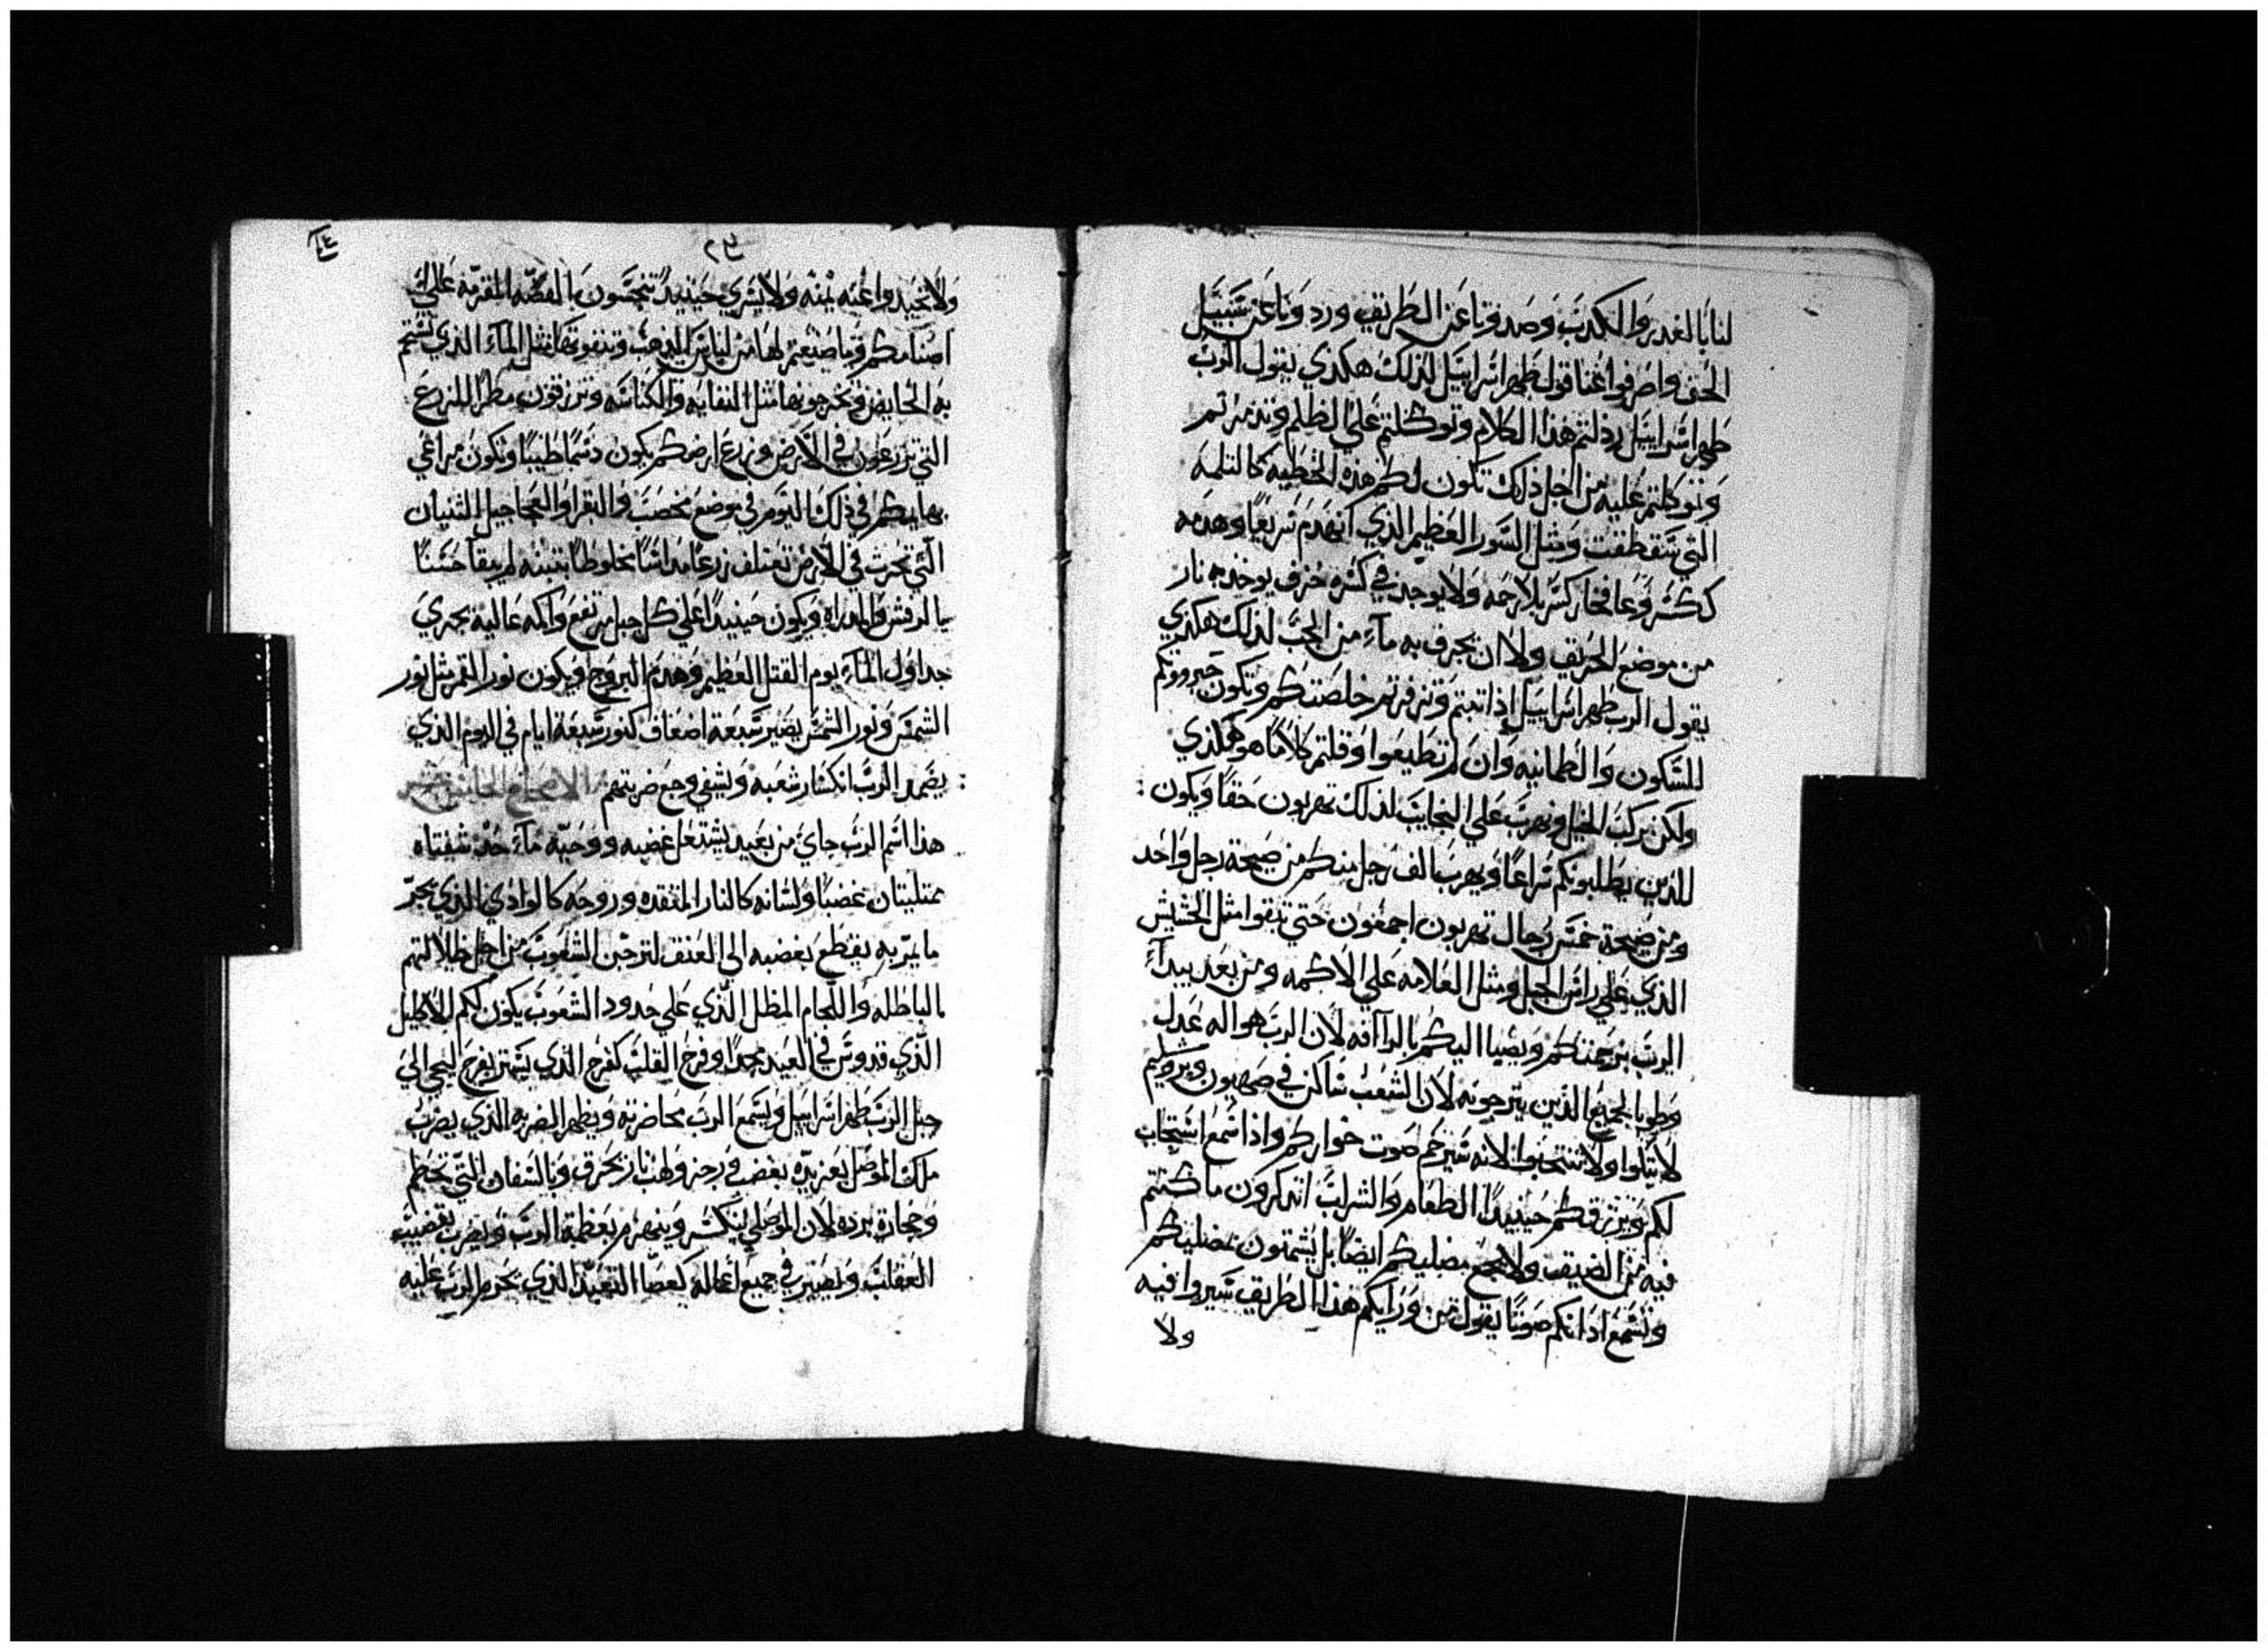 لنا بالغدر والكدب وصدونا عن الطريق وردونا عن سبيل
الحق واصرفوا عنا قول طهر اسراييل لذلك هكدي يقول الرب
طهر اسراييل رذلتم هذا الكلام وتوكلتم علي الظلم وتذمرتم
وتوكلتم عليه من اجل ذلك تكون لكم هذه الخطيه كالتلمه
التي سقطت ومثل السور العظيم الذي انهدم سريعا وهدمه
ككسر وعا فخار كسر بلا رحمه ولا يوجد في كسره خزف يوخد به نار
من موضع الحريق ولا ان يجرف به مآء من الجب لذلك هكدي
يقول الرب طهر اسراييل اذا تبتم وتزفرتم خلصتكم وتكون جبروتكم
للسكون والطمانيه وان لم تطيعوا وقلتم كلاما هو هكذي
ولكن نركب الخيل ونهرب علي النجايب لذلك تهربون حقا ويكون :
للذين يطلبونكم سراعا ويهرب الف رجل منكم من صيحة رجل واحد
ومن صيحة خمس رجال تهربون اجمعون حتي تبقوا مثل الخشبش
الذي علي راس الجبل ومثل العلامه علي الاكمه ومن بعد يبدآء
الرب برحمتكم ويضيا اليكم بالراافه لان الرب هو اله عدل
وطوبا لجميع الذين يترجونه لان الشعب ساكن في صهيون ويروشليم
لا يبكوا ولا تنتحبوا لانه سيرحم صوت خواركم واذا سمع استجاب
لكم ويرزقكم حينيدا الطعام والشراب اتدكرون ما كنتم
فيه من الضيق ولا يجمع مضليكم ايضا بل يشمتون بمضليكم
وتسمع اذانكم صوتا يقول من ورايكم هذا الطريق سيروا فيه
ولا
٢٣
ولا تحيدوا عنه يمنه ولا يسري حينيد تنجسون بالفضه المقرمه علي
اصنامكم وما صنعتم لها من لباس الذهب وتنقونها مثل المآء الذي تستحم
به الحايض وتخرجونها مثل النفايه والكناسه وترزقون مطرا للزرع
التي تزرعون في الارض وزرع ارضكم يكون دسما طيبا وتكون مراعي
بهايمكم في ذلك اليوم في موضع مخصب والبقر والعجاجيل الثنيان
التي تحرث في الارض تعتلف زرعا مداسا مخلوطا بتبنه لم يبقا حسنا
بالرفس والمدراه ويكون حينيدا علي كل جبل مرتفع واكمه عاليه بجري
جداول المآء يوم القتل العظيم وهدم البروج ويكون نور القمر مثل نور
الشمس ونور الشمس يصير سبعة اضعاف كنور سبعة ايام في اليوم الذي
: يضمد الرب انكسار شعبه ويشفي وجع ضربتهم الاصحاح الخامس عشر
هذا اسم الرب جاي من بعيد يشتعل غضبه ووحيه مآء حد شفتاه
ممتليتان غضبا ولسانه كالنار المتقده وروحه كالوادي الذي يجر
ما يمر به يقطع بغضبه الي العنق لترحبن الشعوب من اجل ظلالتهم
بالباطله واللجام المظل الذي علي حدود الشعوب يكون لكم الاكليل
الذي تدوس في العيد مجدا وفرح القلب كفرح الذي يشهر يفرح ليجي الي
جبل الرب طهر اسراييل ويسمع الرب محاضرته ويظهر الضربه الذي يضرب
ملك الموصل بعزيزه بغضب ورجز ولهب نار تحرق وبالسفان التي تحطم
وحجارة برده لان الموصلي ينكسر وينهزم بعظمة الرب ويضرب بقضيب
العقلب ويصير في جميع اعماله كعصا التعبد الذي يحرم الرب عليه